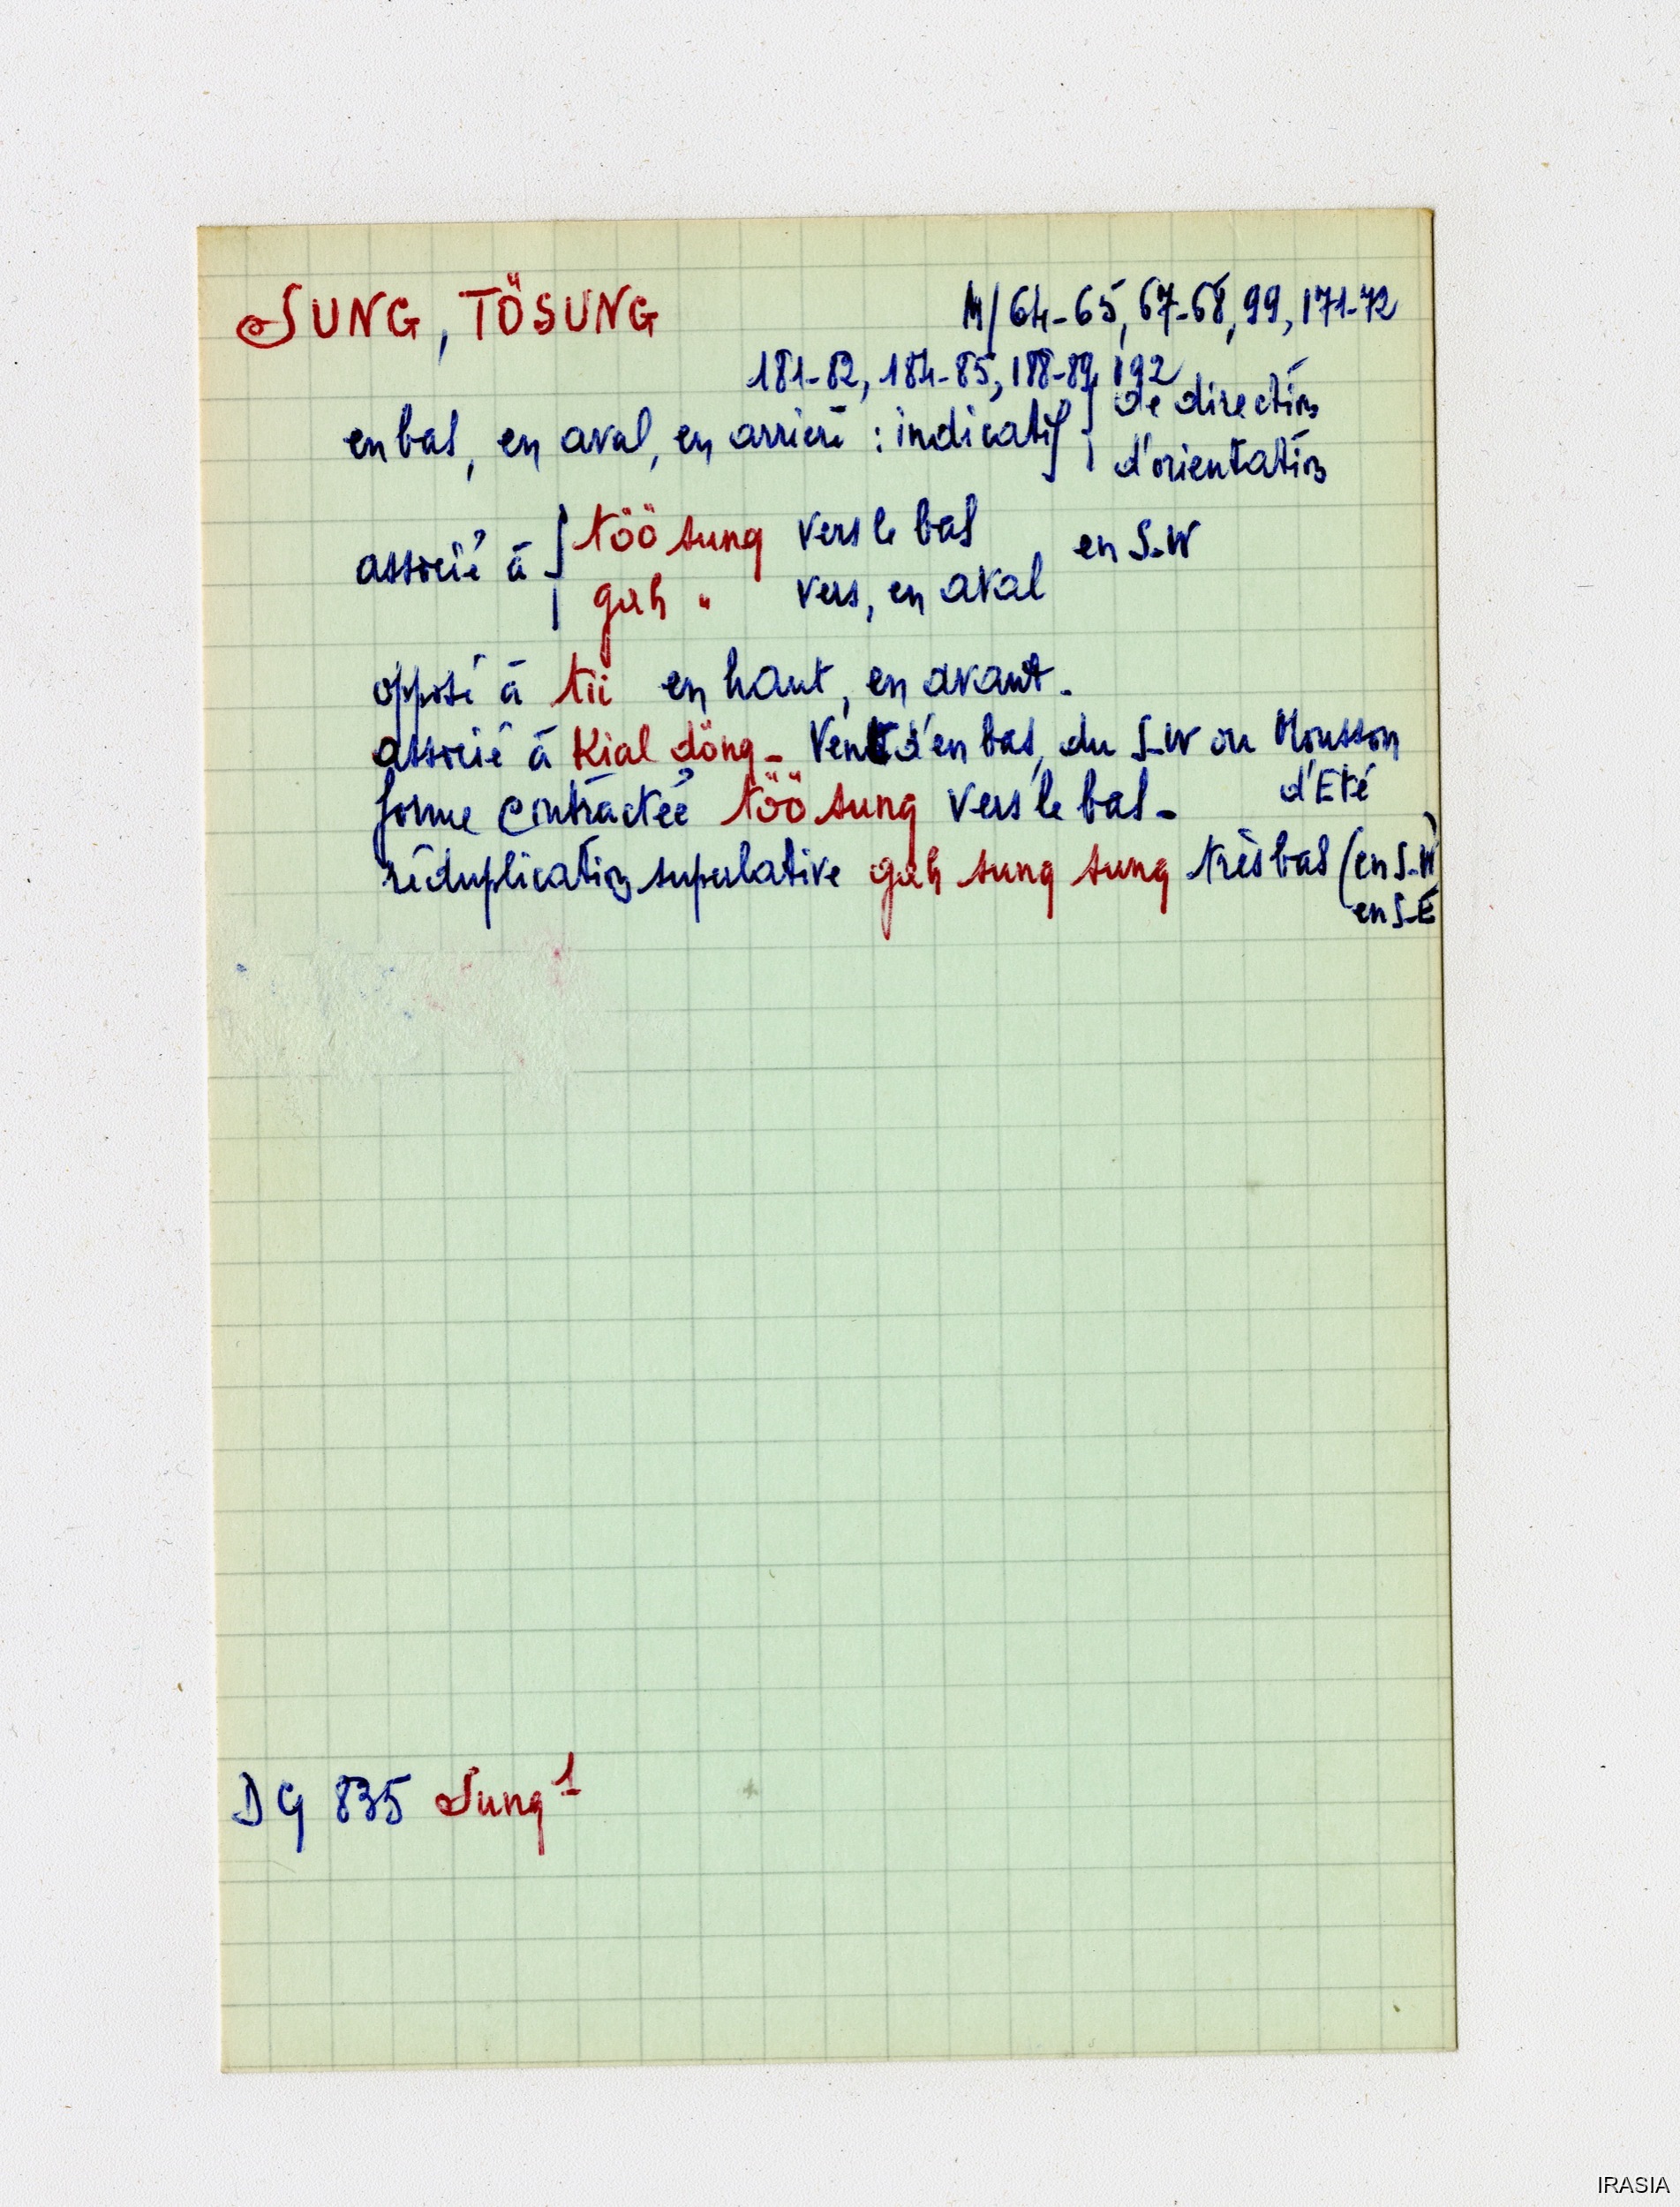 SUNG, TÖSUNG M/64-65, 67-68, 99, 171-72
181-82, 184-85, 188-89, 192
en bas, en aval, en arrière : indicatif { de direction
d'orientation
associé à { töö sung vers le bas, en S-W
gah " vers, en aval
opposé à tii en haut, en avant -
associé à Kial döng - Vent d'en bas, du S-W ou Mousson
d'Eté
forme contractée töö sung vers le bas -
réduplication superlative gah sung sung très bas (en S-W)
en S-E
DG 835 Sung 1
IRASIA